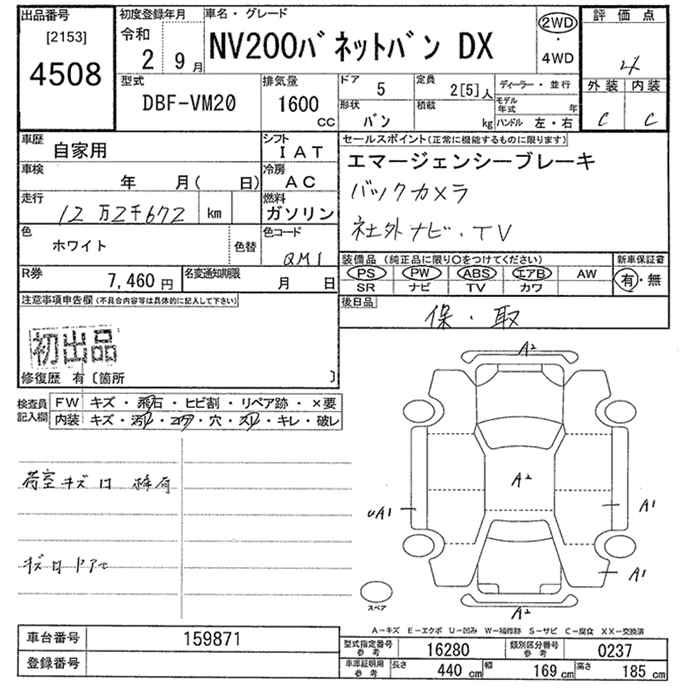 出品番号
[2153]
4508
初度登録年月
令和 2 9月
車名・グレード
NV200バネットバン DX
2WD
・
4WD
評価点
4
外装 内装
C C
型式
DBF-VM20
排気量
1600 CC
ドア 5
定員 2[5]人
ディーラー・並行
形状 バン
積載 kg
モデル年式 年
ハンドル 左・右
車歴 自家用
シフト IAT
車検 年 月( 日)
冷房 AC
走行 12万2千672 km
燃料 ガソリン
色 ホワイト
色替
色コード QM1
R券 7,460円
名変通知期限 月 日
セールスポイント(正常に機能するものに限ります)
エマージェンシーブレーキ
バックカメラ
社外ナビ・TV
装備品(純正品に限り○をつけてください)
新車保証書
PS PW ABS エアB AW
SR ナビ TV カワ
有・無
後日品
保・取
注意事項申告欄(不具合内容等は具体的に記入して下さい)
初出品
修復歴 有〔箇所 〕
検査員記入欄
FW キズ・飛石・ヒビ割・リペア跡・×要
内装 キズ・汚れ・コゲ・穴・スレ・キレ・破レ
荷室キズ
A2
A2
UA1
A1
A1
A2
スペア
A-キズ E-エクボ U-凹み W-補修跡 S-サビ C-腐食 XX-交換済
車台番号 159871
登録番号
型式指定番号参考 16280
類別区分番号参考 0237
車庫証明用参考
長さ 440 cm
幅 169 cm
高さ 185 cm